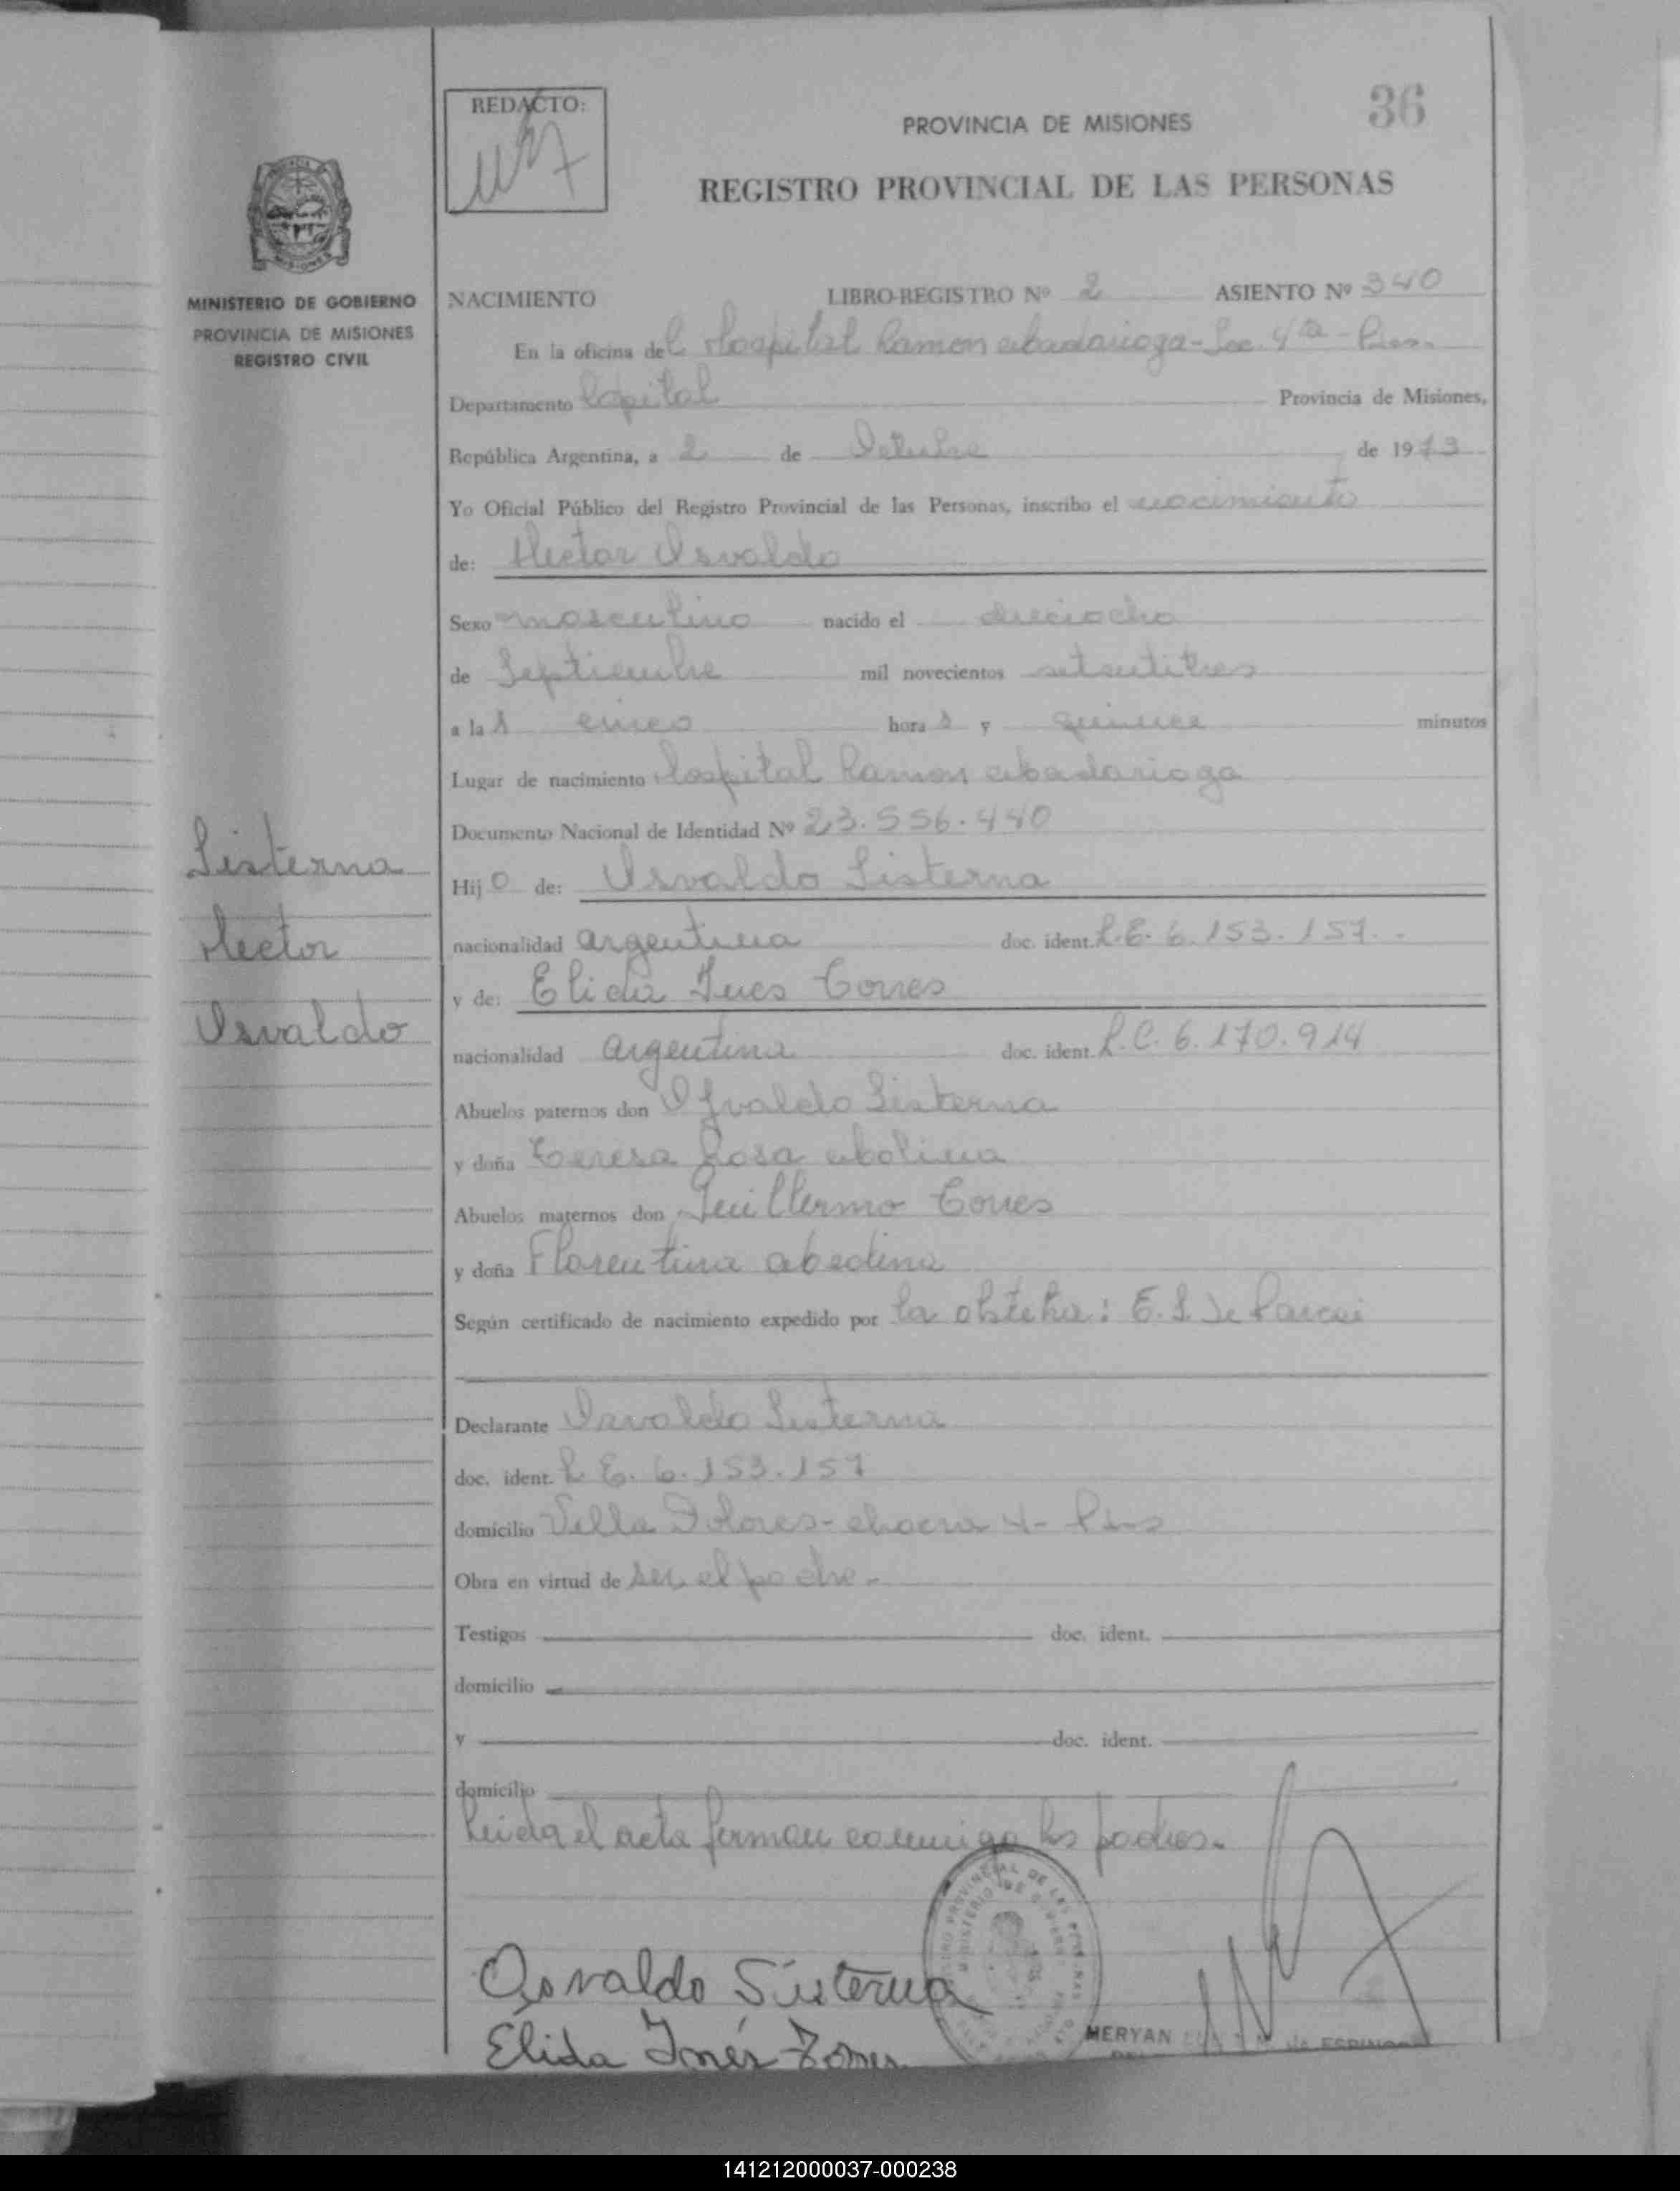 36
REDACTO:
PROVINCIA DE MISIONES
REGISTRO PROVINCIAL DE LAS PERSONAS
MINISTERIO DE GOBIERNO
PROVINCIA DE MISIONES
REGISTRO CIVIL
NACIMIENTO LIBRO-REGISTRO Nº 2 ASIENTO Nº 340
En la oficina del Hospital Ramon Madariaga - Sec. 4ta -
Departamento Capital Provincia de Misiones,
República Argentina, a 2 de Octubre de 1973
Yo Oficial Público del Registro Provincial de las Personas, inscribo el nacimiento
de: Hector Osvaldo
Sexo masculino nacido el dieciocho
de Septiembre mil novecientos setentitres
a las cinco horas y quince minutos
Lugar de nacimiento Hospital Ramon Madariaga
Documento Nacional de Identidad Nº 23.556.440
Sisterna
Hijo de: Osvaldo Sisterna
Hector
nacionalidad argentina doc. ident. L.E. 6.153.157.-
y de: Elida Ines Torres
Osvaldo
nacionalidad argentina doc. ident. L.C. 6.170.914
Abuelos paternos don Osvaldo Sisterna
y doña Teresa Rosa Molina
Abuelos maternos don Guillermo Torres
y doña Florentina Medina
Según certificado de nacimiento expedido por la obstetra: E. S. de
Declarante Osvaldo Sisterna
doc. ident. L.E. 6.153.157
domicilio Villa Dolores - chacra 4 -
Obra en virtud de ser el padre -
Testigos doc. ident.
domicilio
y doc. ident.
domicilio
Leida el acta firman conmigo los padres.
Osvaldo Sisterna
Elida Inés Torres
MERYAN de ESPINOSA
141212000037-000238